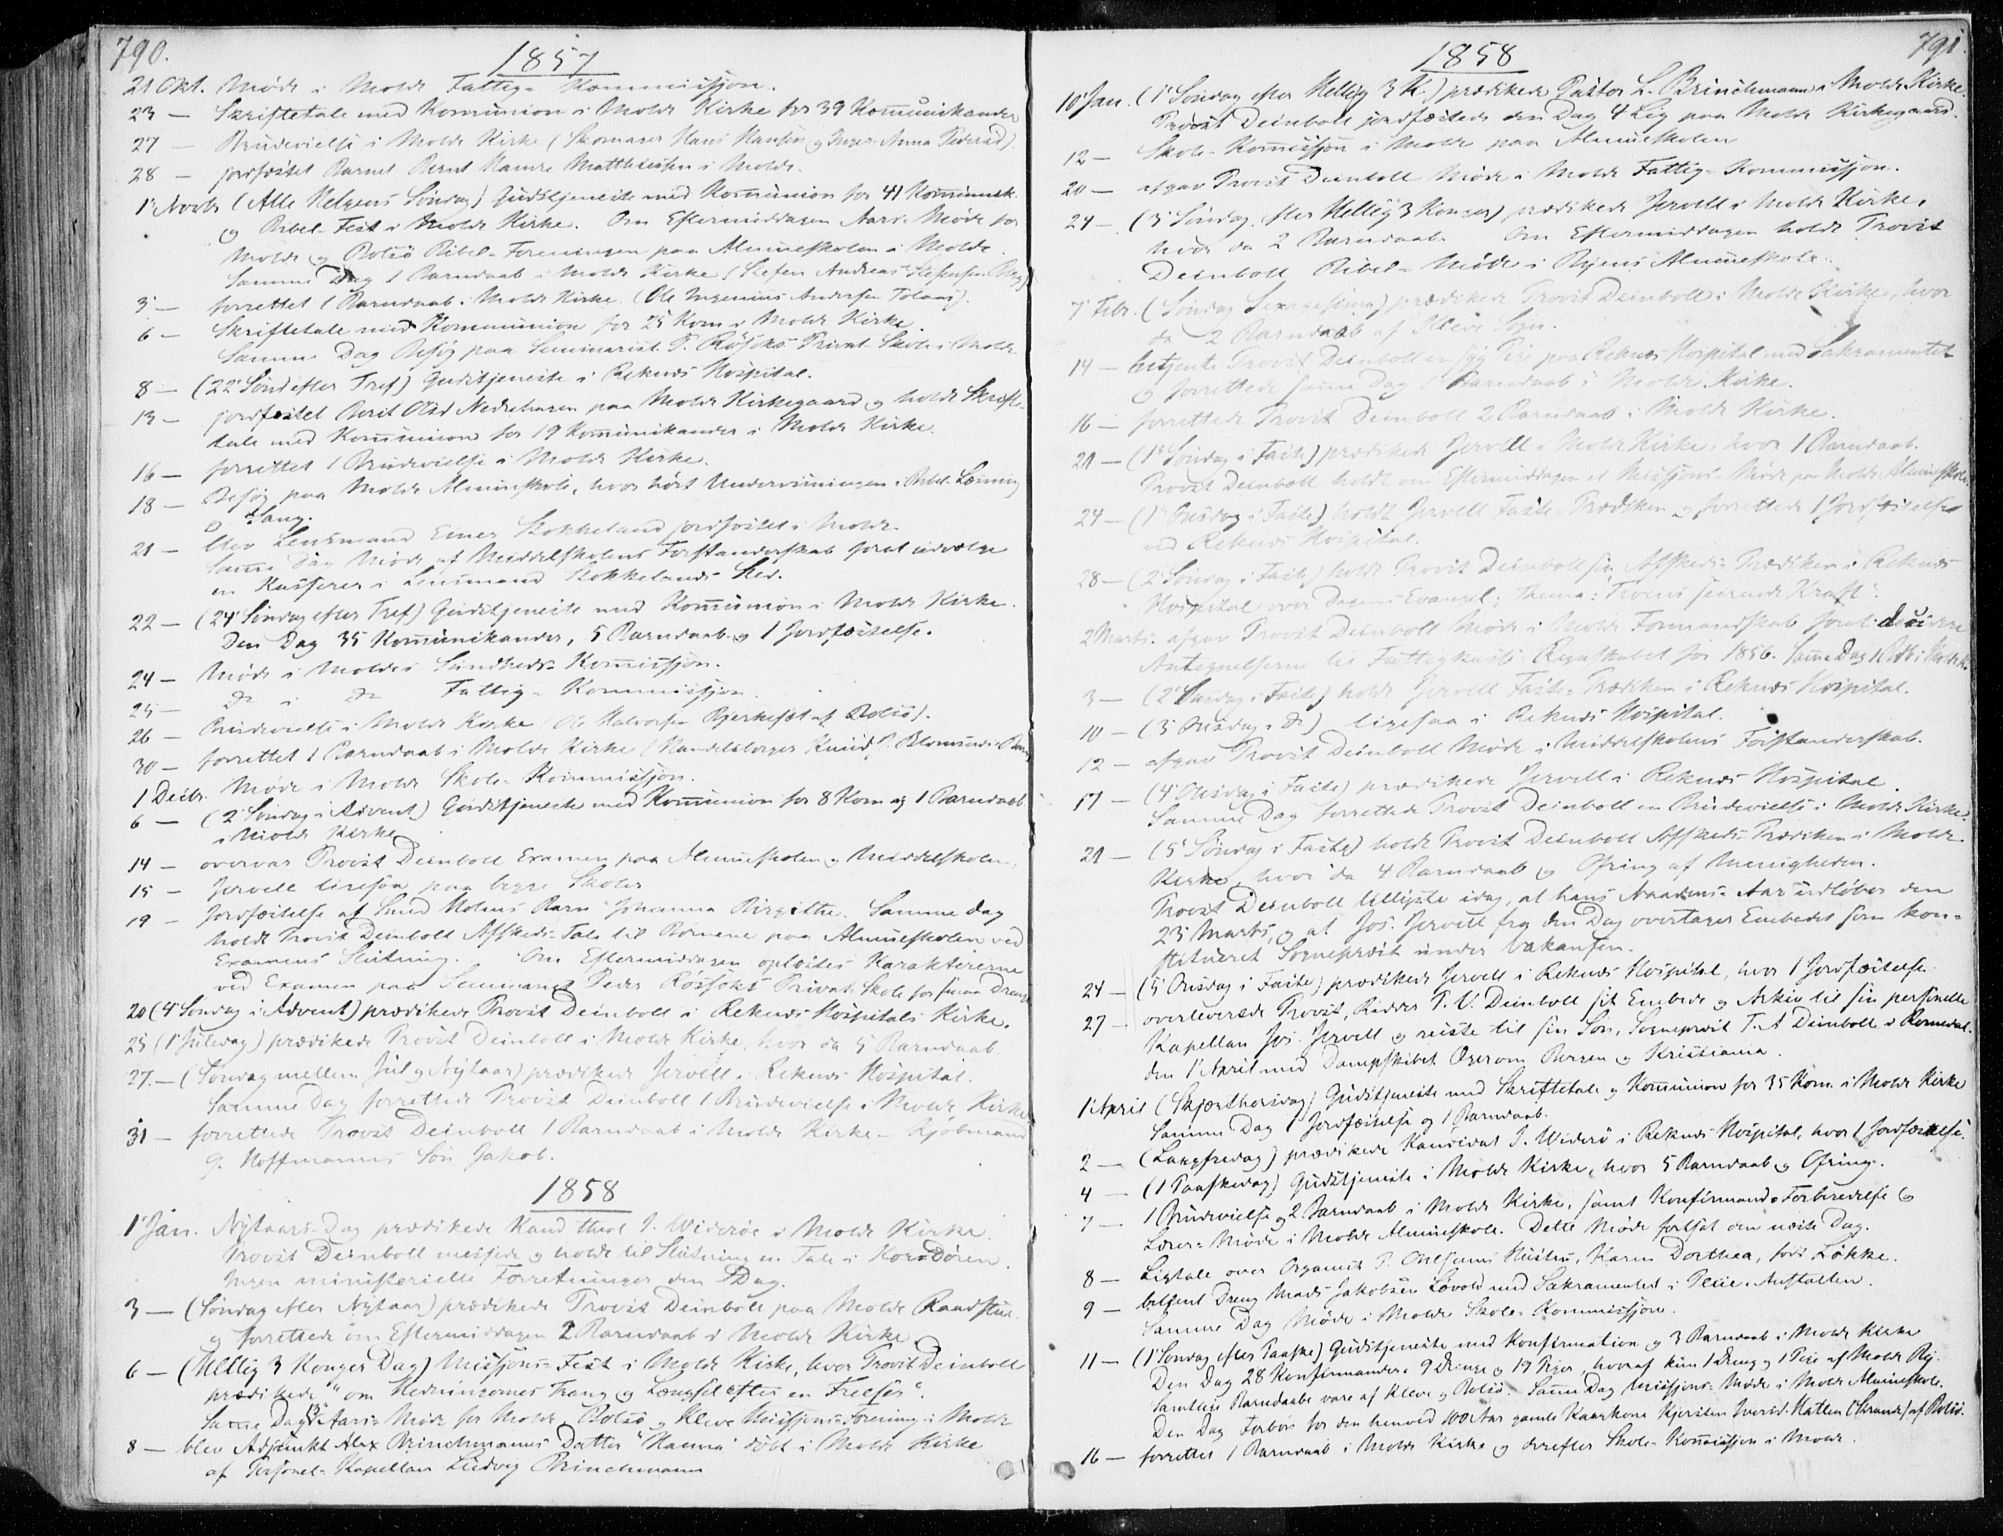 790.
1857
21 Okt. Møde i Molde Fattig-Kommissjon.
23 — Skriftetale med Kommunion i Molde Kirke for 39 Kommunikander
27 — Brudevielse i Molde Kirke (Skomager Hans Hansen og Anna Pedersd).
28 — jordfæstet Barnet Bernt Matthiessen i Molde.
1' Novbr (Alle Helgens Søndag) Gudstjeneste med Kommunion for 41 Kommunik.
og Bibel-Fest i Molde Kirke. Om Eftermiddagen Aars-Møde for
Molde og Bolsø Bibel-Foreningen paa Almueskolen i Molde.
Samme Dag 1 Barndaab i Molde Kirke (Steffen Andreas
3 — forrettet 1 Barndaab i Molde Kirke (Ole Andersen Tolaas).
6 — Skriftetale med Kommunion for 25 Kom i Molde Kirke.
Samme Dag Besøg paa Seminarist P. Røsoks Privat Skole i Molde
8 — (22 Sønd efter Tref) Gudstjeneste i Reknes Hospital.
13 — jordfæstet Berit Olsd Nedrehusen paa Molde Kirkegaard og holdt Skrifte-
tale med Kommunion for 19 Kommunikander i Molde Kirke.
16 — forrettet 1 Brudevielse i Molde Kirke.
18 — Besøg paa Molde Almueskole, hvor hørt Underviisningen i Bibel-Læsning
og Sang.
21 — blev Lensmand Einer Stokkeland jordfæstet i Molde.
Samme Dag Møde af Middelskolens Forstanderskab forat udvælge
en Kasserer i Lensmand Stokkelands Sted.
22 — (24 Søndag efter Tref) Gudstjeneste med Kommunion i Molde Kirke.
Den Dag 35 Kommunikander, 5 Barndaab og 1 Jordfæstelse.
24 — Møde i Moldes Sundheds-Kommissjon.
25 — do i do Fattig-Kommissjon.
26 — Brudevielse i Molde Kirke Ole Halvorsen Bjerkeset af Bolsø).
30 — forrettet 1 Barndaab i Molde Kirke (Handelsborger Knud P. Blomsnes Barn)
1 Decbr. Møde i Molde Skole-Kommissjon.
6 — (2 Søndag i Advent) Gudstjeneste med Kommunion for 8 Kom og 1 Barndaab
i Molde Kirke
14 — overvar Provst Deinboll Examen paa Almueskolen og Middelskolen.
15 — Jervell ligesaa paa begge Skoler
19 — Jordfæstelse af Smed Holms Barn Johanna Birgithe. Samme Dag
holdt Provst Deinboll Afskeds-Tale til Børnene paa Almueskolen ved
Examens Slutning. Om Eftermiddagen oplæstes Karaktererne
ved Examen paa Seminarist Peder Røsoks Privat Skole for smaa Drenge
20 (4' Søndag i Advent) prædikede Provst Deinboll i Reknes Hospitals Kirke.
25 (1' Juledag) prædikede Provst Deinboll i Molde Kirke, hvor da 5 Barndaab
27. — (Søndag mellem Jul og Nytaar) prædikede Jervell i Reknes Hospital.
Samme Dag forrettede Provst Deinboll 1 Brudevielse i Molde Kirke
31 — forrettede Provst Deinboll 1 Barndaab i Molde Kirke — Kjøbmand
G. Hoffmanns Søn Jakob.
1858
1' Jan. Nytaars-Dag prædikede Kand theol J. Widerøe i Molde Kirke.
Provst Deinboll messede og holdt til Slutning en Tale i Kordøren.
Ingen ministerielle Forretninger den Dag.
3 — (Søndag efter Nytaar) prædikede Provst Deinboll paa Molde Raadstue
og forrettede om Eftermiddagen 2 Barndaab i Molde Kirke
6 — (Hellig 3 Konger Dag) Missjons-Fest i Molde Kirke, hvor Provst Deinboll
prædikede "om Hedningernes Trang og Længsel efter en Frelser".
Samme Dag Aars-Møde for Molde, Bolsø og Kleve Missjons-Forening i Molde
8 — blev Adjunkt Alex Brinchmanns Datter "Hanna" døbt i Molde Kirke
af Personel-Kapellan Ludvig Brinchmann
791.
1858
10 Jan. (1' Søndag efter Hellig 3 K.) prædikede Pastor L. Brinchmann i Molde Kirke.
Provst Deinboll jordfæstede den Dag 4 Lig paa Molde Kirkegaard.
12 — Skole-Kommissjon i Molde paa Almueskolen
20 — afgav Provst Deinboll Møde i Molde Fattig-Kommissjon.
24 — (3 Søndag efter Hellig 3 Konger) prædikede Jervell i Molde Kirke,
hvor da 2 Barndaab. Om Eftermiddagen holdt Provst
Deinboll Bibel-Møde i Byens Almueskole.
7' Febr. (Søndag Sexagesima) prædikede Provst Deinboll i Molde Kirke, hvor
da 2 Barndaab af Kleve Sogn.
14 — betjente Provst Deinboll en syg Pige paa Reknes Hospital med Sakramentet
og forrettede samme Dag 1 Barndaab i Molde Kirke.
16 — forrettede Provst Deinboll 2 Barndaab i Molde Kirke.
21 — (1' Søndag i Faste) prædikede Jervell i Molde Kirke, hvor 1 Barndaab.
Provst Deinboll holdt om Eftermiddagen et Missjons-Møde paa Molde Almueskole
24 — (1' Onsdag i Faste) holdt Jervell Faste-Prædiken og forrettede 1 Jordfæstelse
ved Reknes Hospital.
28 — (2 Søndag i Faste) holdt Provst Deinboll sin Afskeds-Prædiken i Reknes
Hospital over Dagens Evangel; Thema: Troens seirende Kraft".
2 Marts. afgav Provst Deinboll Møde i Molde Formandskab forat decidere
Antegnelserne til Fattigkasse-Regnskabet for 1856. Samme Dag
3 — (2' Onsdag i Faste) holdt Jervell Faste-Prædiken i Reknes Hospital.
10 — (3' Onsdag i do) ligesaa i Reknes Hospital.
12 — afgav Provst Deinboll Møde i Middelskolens Forstanderskab.
17 — (4' Onsdag i Faste) prædikede Jervell i Reknes Hospital.
Samme Dag forrettede Provst Deinboll en Brudevielse i Molde Kirke.
21 — (5' Søndag i Faste) holdt Provst Deinboll Afskeds-Prædiken i Molde
Kirke, hvor da 4 Barndaab og Ofring af Menigheden.
Provst Deinboll tillyste idag, at hans Naadens-Aar udløber den
23 Marts, og at Jos. Jervell fra den Dag overtager Embedet som kon-
stitueret Sogneprest under Vakansen.
24 — (5 Onsdag i Faste) prædikede Jervell i Reknes Hospital, hvor 1 Jordfæstelse.
27 — overleverede Provst, Ridder P. V. Deinboll sit Embede og Arkiv til sin personelle
Kapellan Jos. Jervell og reiste til sin Søn, Sogneprest T. A Deinboll i Romedal.
den 1' April med Dampskibet Ægir om Bergen og Kristiania.
1' April (Skjærthorsdag) Gudstjeneste med Skriftetale og Kommunion for 35 Kom. i Molde Kirke
Samme Dag 1 Jordfæstelse og 1 Barndaab.
2 — (Langfredag) prædikede Kandidat J. Widerø i Reknes Hospital, hvor 1 Jordfæstelse.
4 — (1 Paaskedag) Gudstjeneste i Molde Kirke, hvor 5 Barndaab og Ofring.
7 — 1 Brudevielse og 2 Barndaab i Molde Kirke, samt Konfirmand-Forberedelse og
Lærer-Møde i Molde Almueskole. Dette Møde fortsat den næste Dag.
8 — Ligtale over Organist P. Oulsens Hustru, Karen Dorthea, født Løkke.
9 — betjent Dreng Mads Jakobsen Løvold med Sakramentet i Pleie-Anstalten.
Samme Dag Møde i Molde Skole-Kommissjon.
11 — (1' Søndag efter Paaske) Gudstjeneste med Konfirmation og 3 Barndaab i Molde Kirke
Den Dag 28 Konfirmander: 9 Drenge og 19 Piger, hvoraf kun 1 Dreng og 1 Pige af Molde By.
Samtlige Barndaabe vare af Kleve og Bolsø. Samme Dag Missjons-Møde i Molde Almueskole.
Den Dag Forbøn for den henved 100 Aar gamle Kaarkone Kjersten Iversd. Hatten (Strande) af Bolsø.
16 — forrettet 1 Barndaab i Molde Kirke og derefter Skole-Kommissjon i Molde.